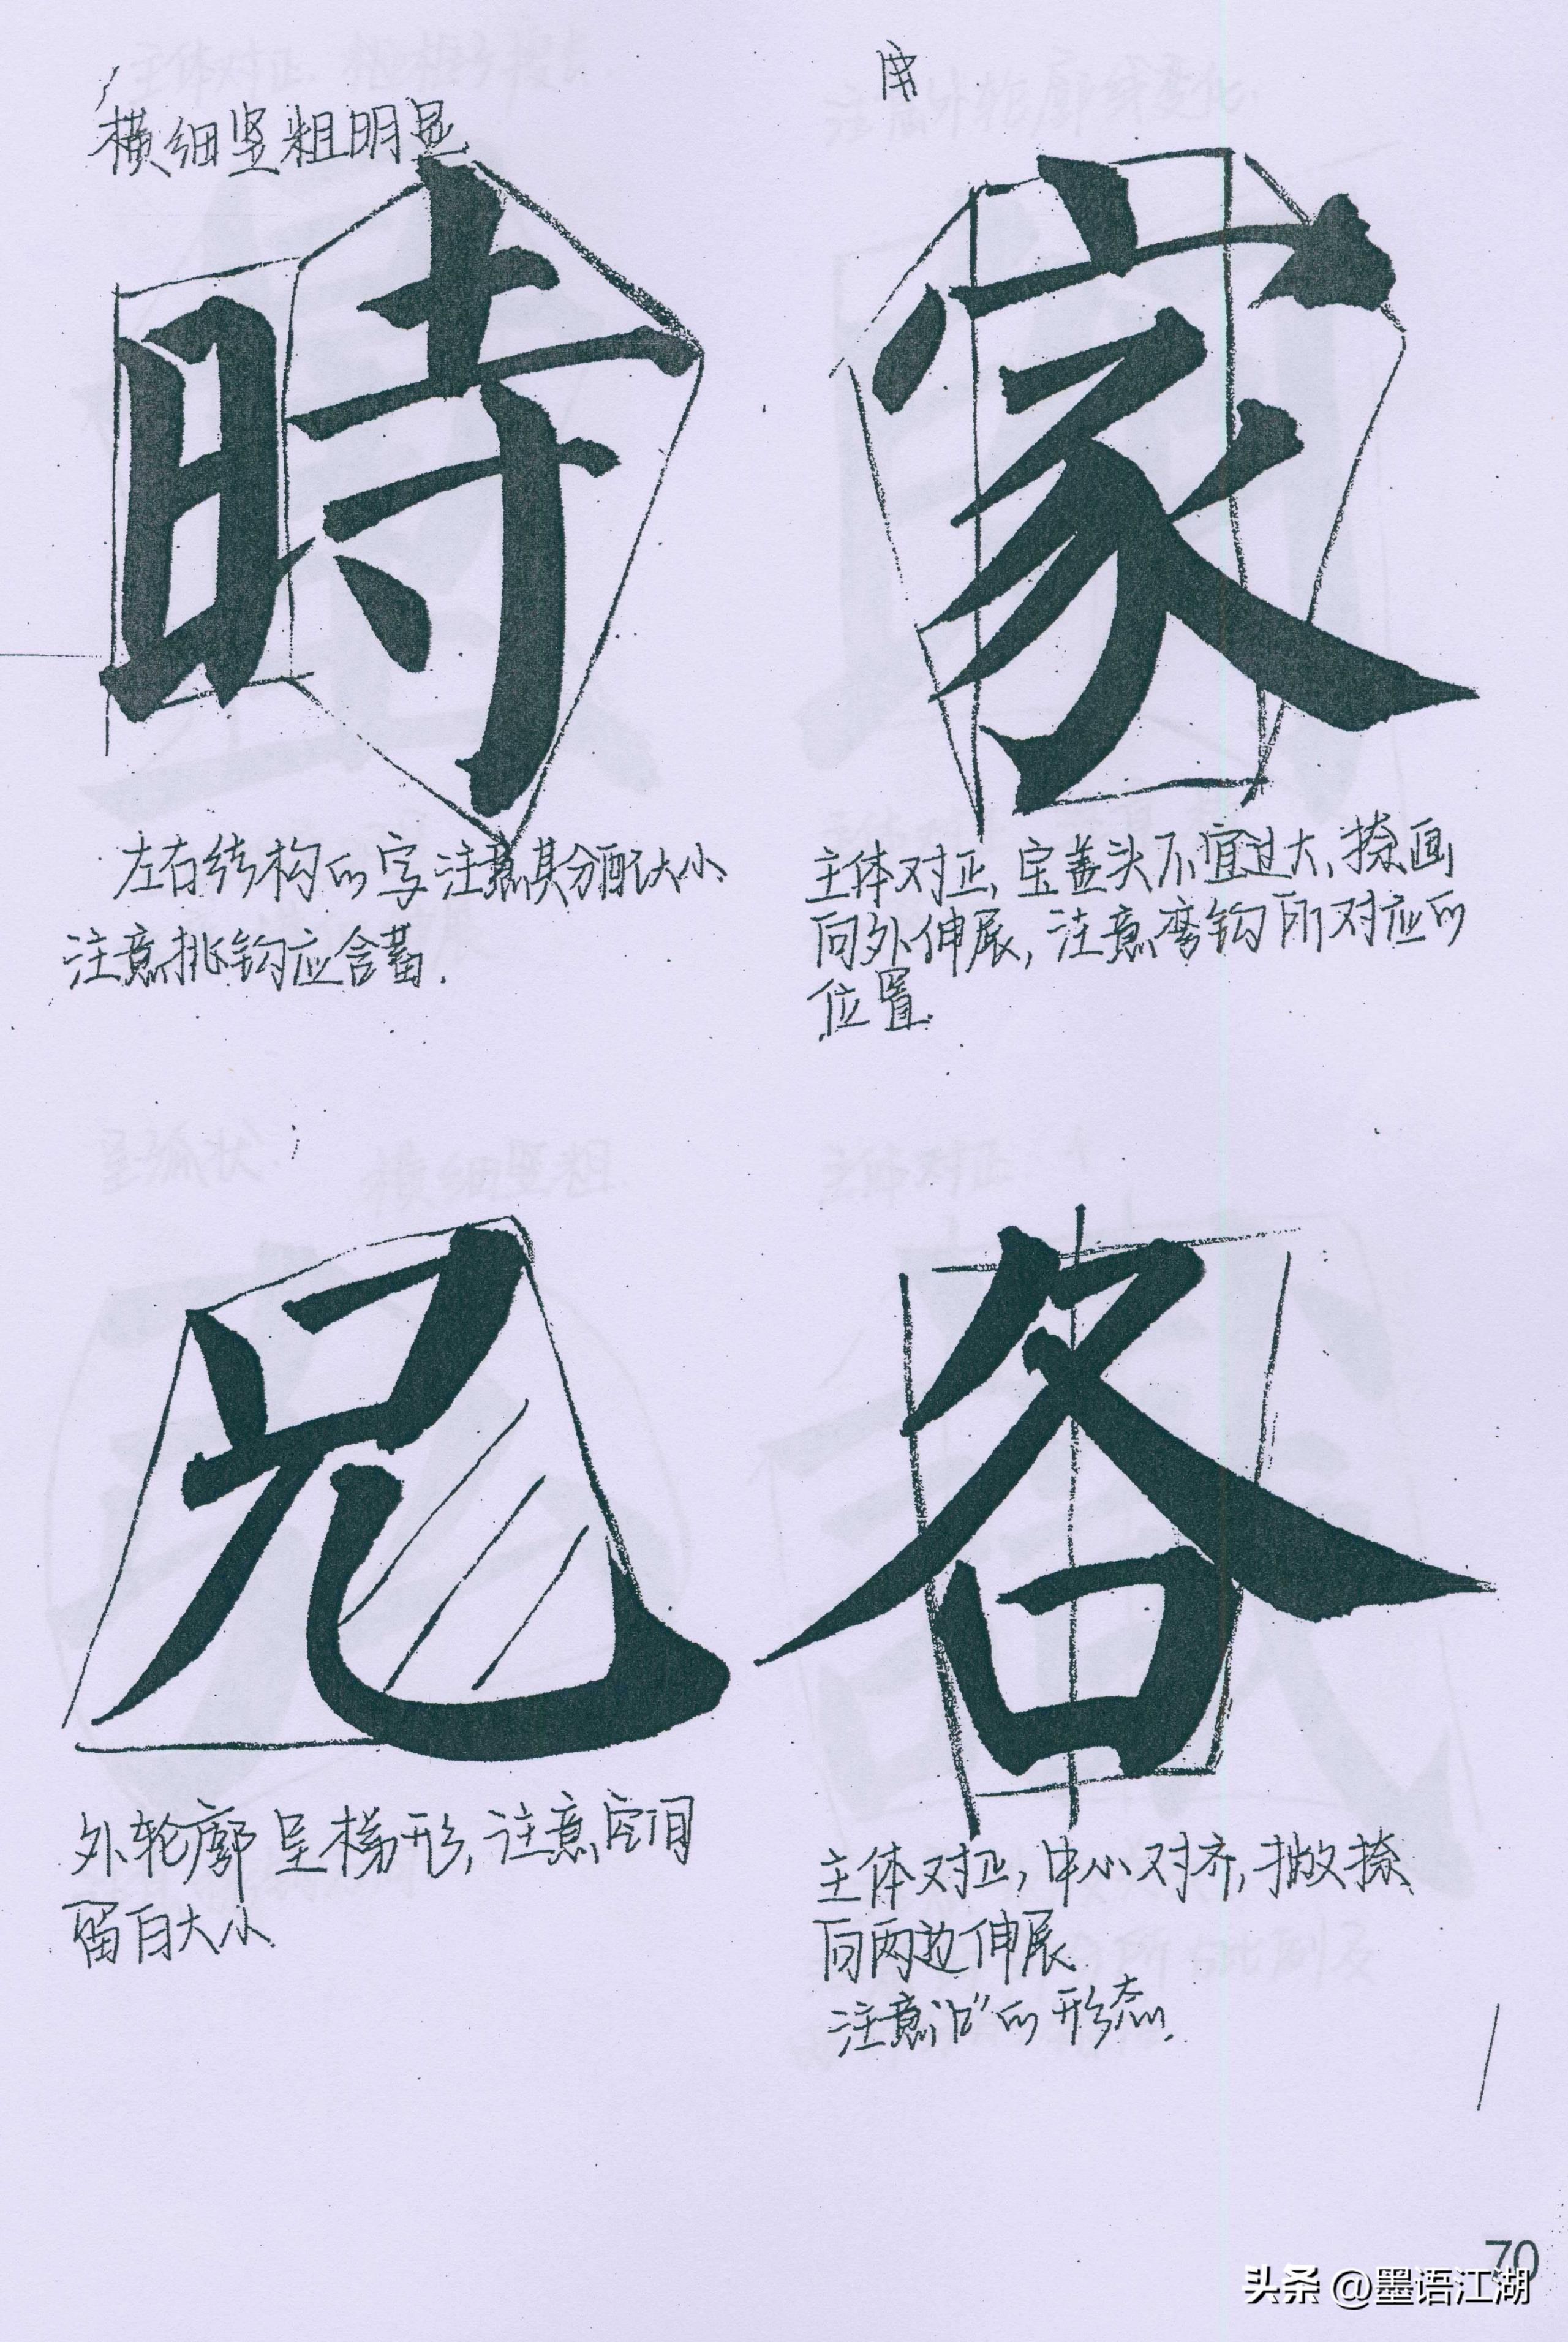 横细竖粗明显
時
家
左右结构的字注意其分配大小
注意挑钩应含蓄.
主体对正,宝盖头不宜过大、捺画
向外伸展,注意弯钩所对应的
位置.
兄
各
外轮廓呈梯形,注意空间
留白大小.
主体对正,中心对齐,撇捺
向两边伸展.
注意“口”的形态.
70
头条 @墨语江湖